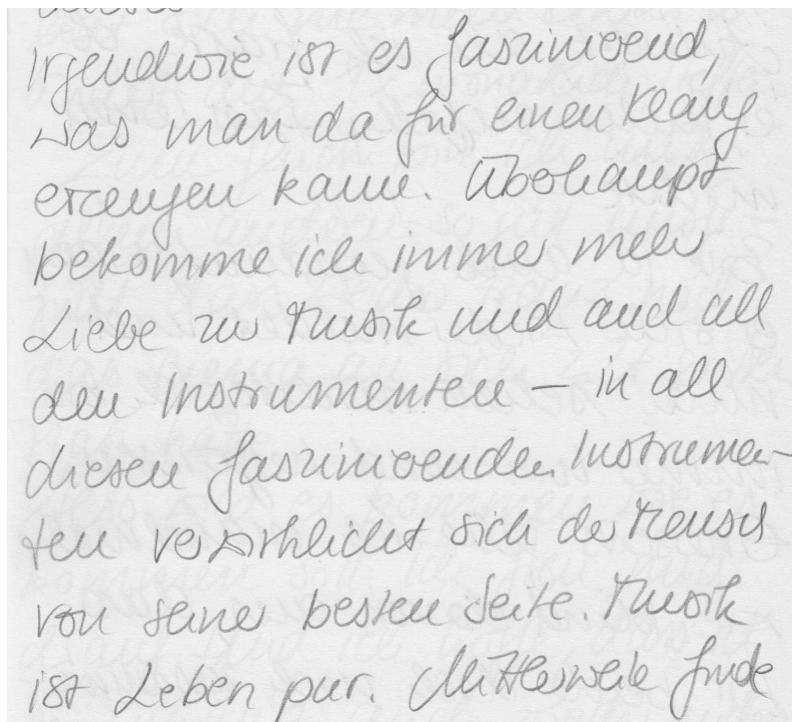 Irgendwie ist es faszinierend,
was man da für einen Klang
erzeugen kann. Überhaupt
bekomme ich immer mehr
Liebe zur Musik und auch all
den Instrumenten – in all
diesen faszinierenden Instrumen-
ten verwirklicht sich der Mensch
von seiner besten Seite. Musik
ist Leben pur. Mittlerweile finde